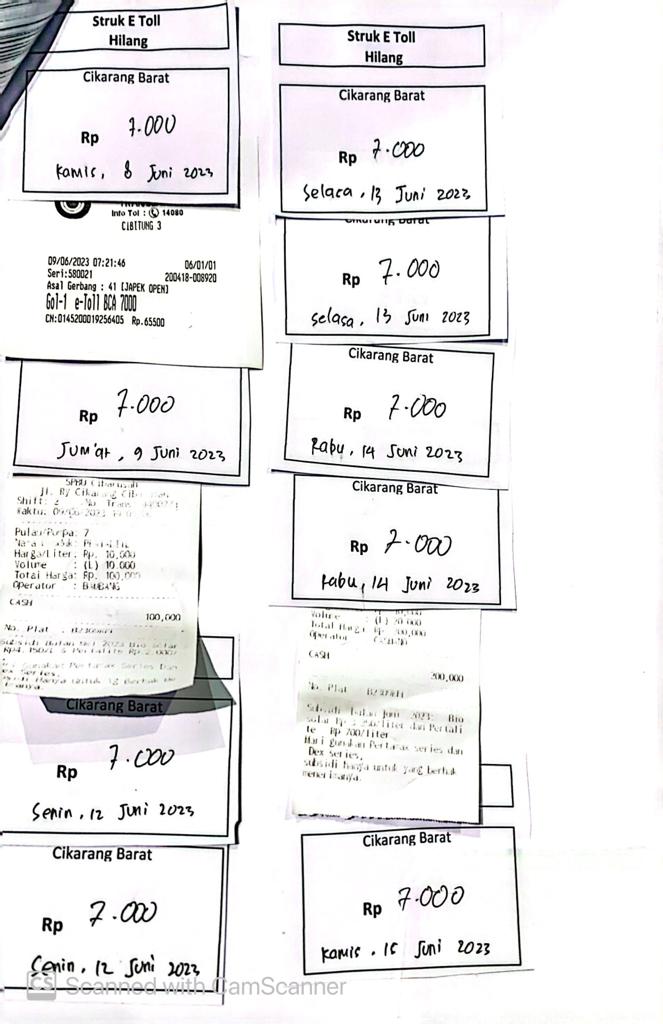 Struk E Toll
Hilang
Cikarang Barat
Rp 7.000
Kamis, 8 Juni 2023
Info Tol : 14080
CIBITUNG 3
09/06/2023 07:21:46 06/01/01
Seri:580021 200418-008920
Asal Gerbang : 41 [JAPEK OPEN]
Gol-1 e-Toll BCA 7000
CN:0145200019256405 Rp.65500
Rp 7.000
Jum'at, 9 Juni 2023
SPBU
Jl. Ry Cikarang
Shift: 2 No. Trans:
Waktu:
Pulau/Pompa: 7
Harga/Liter: Rp. 10,000
Volume : (L) 10.000
Total Harga: Rp. 100,000
Operator :
CASH
100,000
No. Plat :
Cikarang Barat
Rp 7.000
Senin, 12 Juni 2023
Cikarang Barat
Rp 7.000
Senin, 12 Juni 2023
Struk E Toll
Hilang
Cikarang Barat
Rp 7.000
Selasa, 13 Juni 2023
Cikarang Barat
Rp 7.000
Selasa, 13 Juni 2023
Cikarang Barat
Rp 7.000
Rabu, 14 Juni 2023
Cikarang Barat
Rp 7.000
Rabu, 14 Juni 2023
Volume : (L) 20.000
Total Harga : Rp. 200,000
Operator
CASH
200,000
No. Plat
Subsidi bulan Juni 2023: Bio
solar Rp /liter dan Pertali
te Rp 700/liter
Mari gunakan Pertamax series dan
Dex series,
subsidi hanya untuk yang berhak
menerimanya.
Cikarang Barat
Rp 7.000
Kamis, 15 Juni 2023
CS Scanned with CamScanner